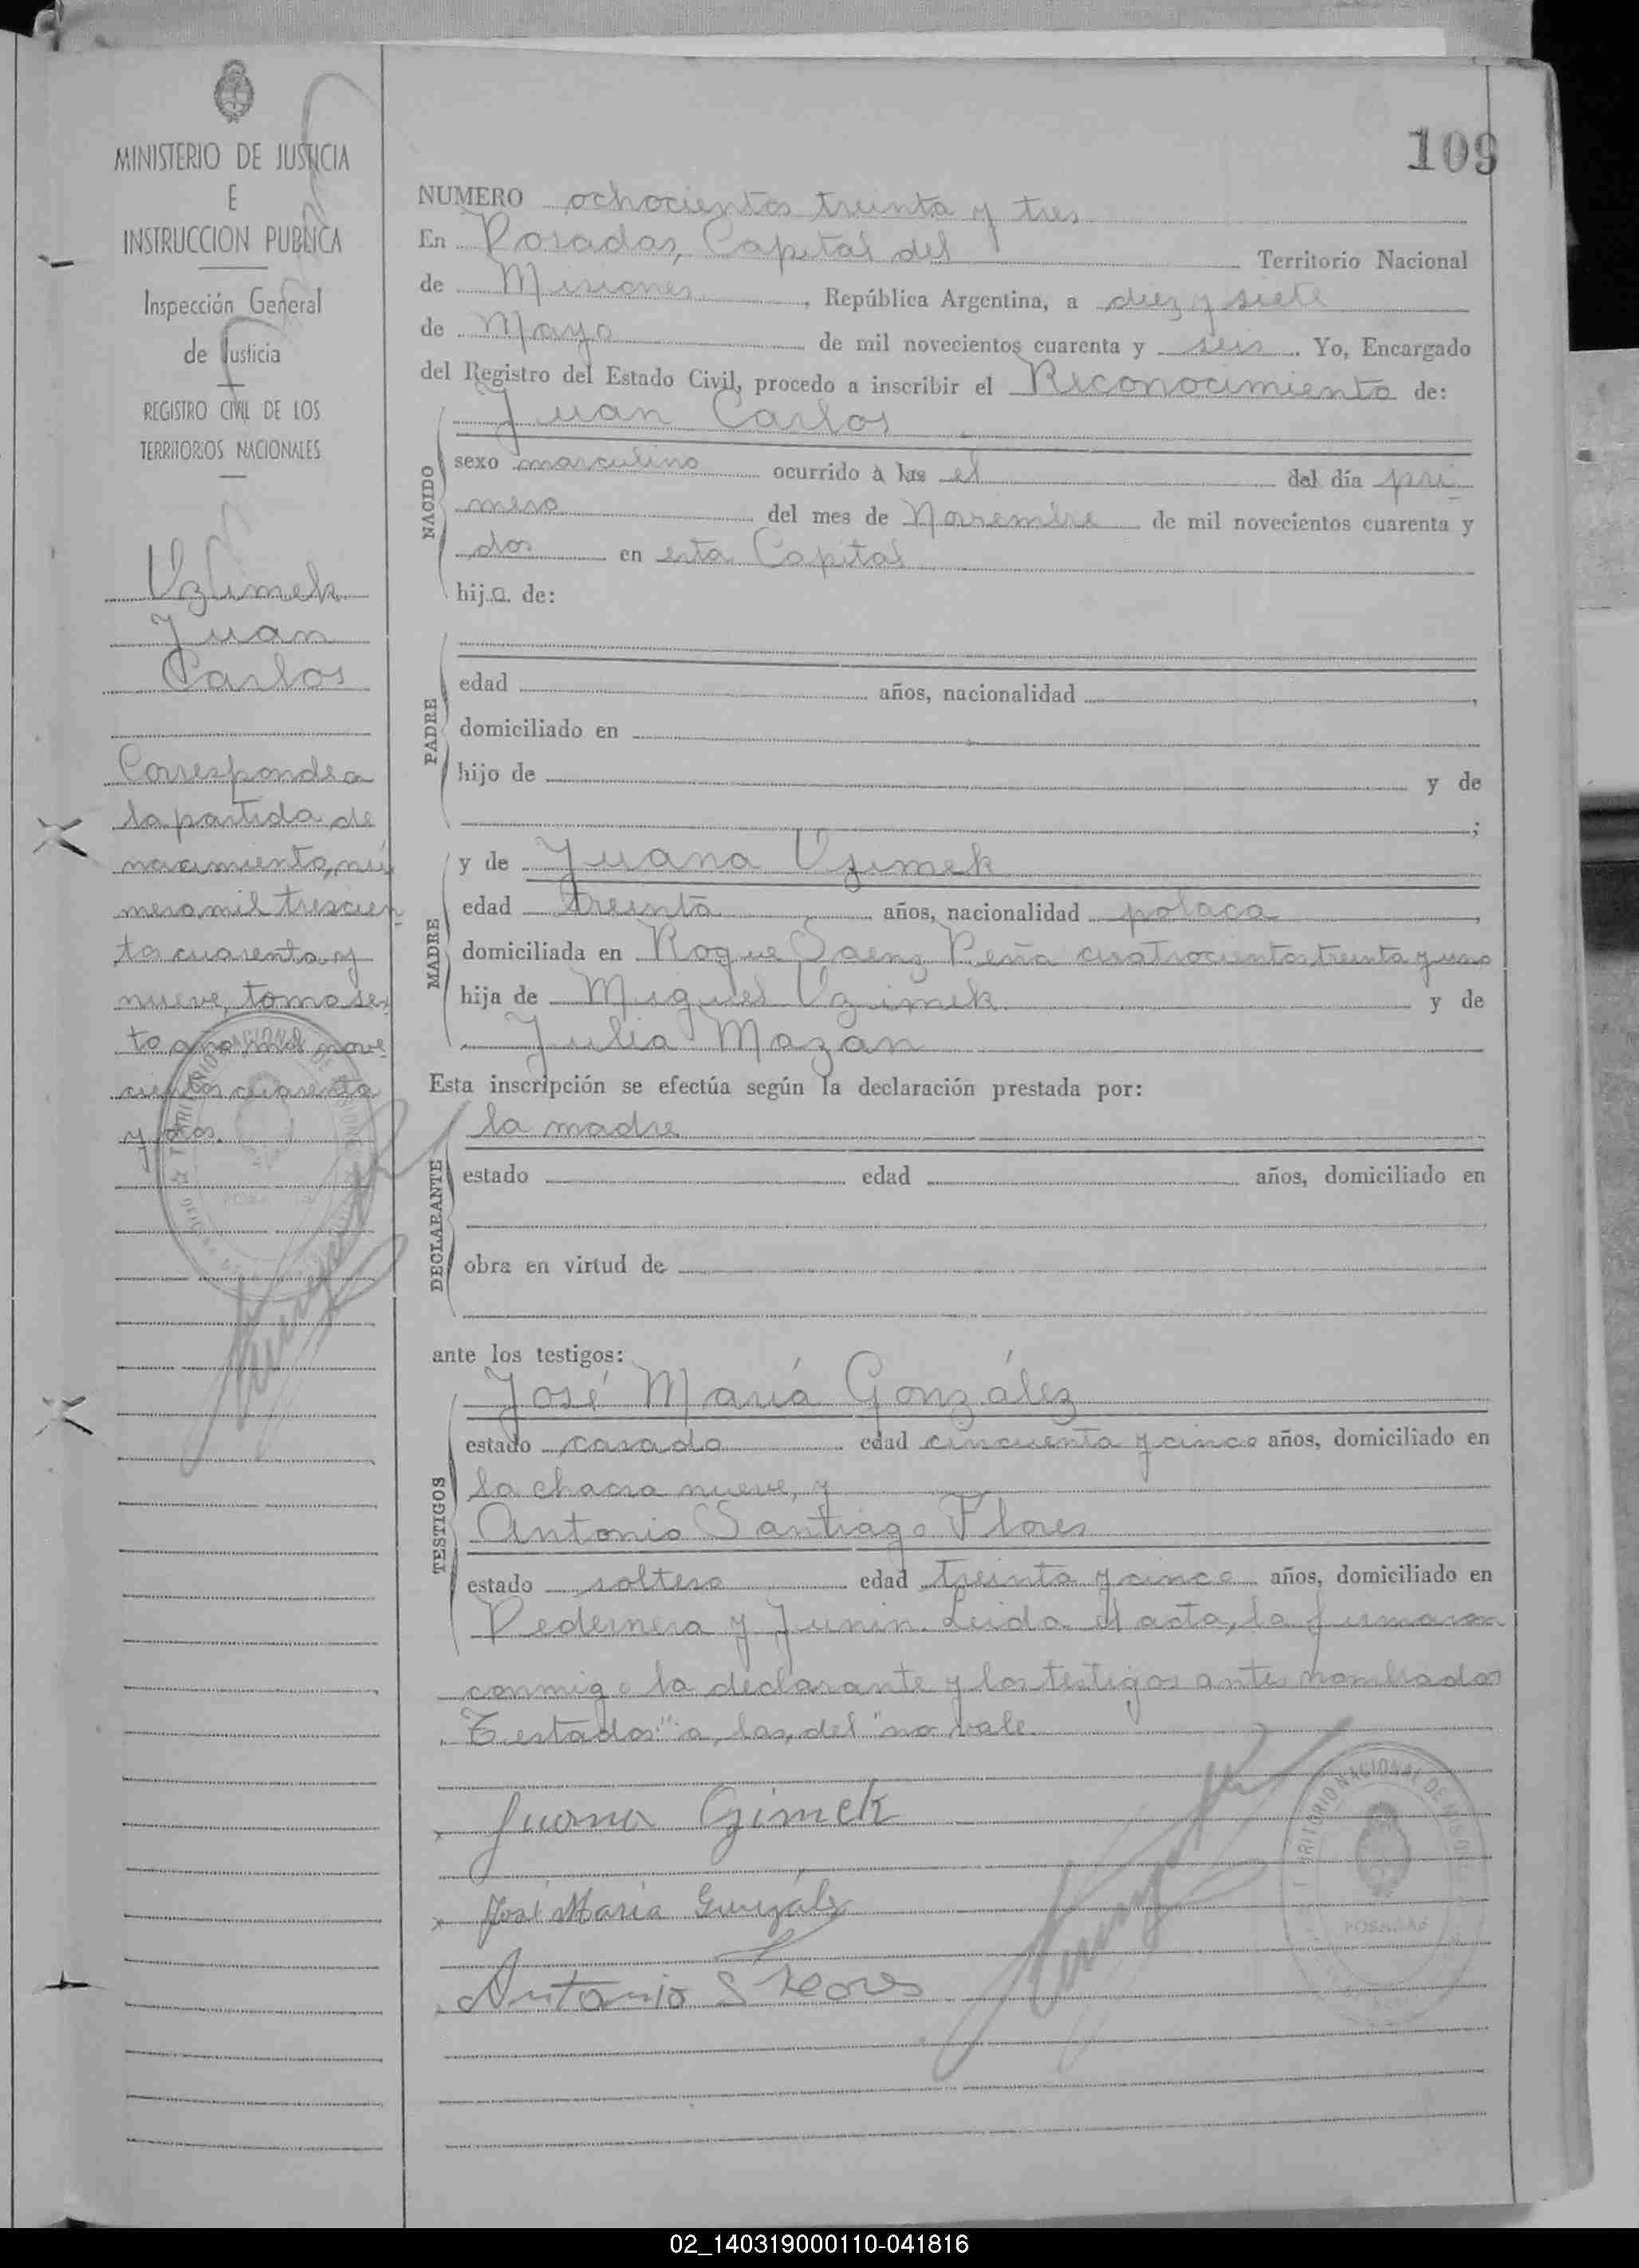 109
MINISTERIO DE JUSTICIA
E
INSTRUCCION PUBLICA
Inspección General
de Justicia
REGISTRO CIVIL DE LOS
TERRITORIOS NACIONALES
Uzimek
Juan
Carlos
Corresponde a
la partida de
nacimiento, nú
mero mil trescien
tos cuarenta y
nueve, tomo sex
to año mil nove
cientos cuarenta
y dos.
NUMERO ochocientos treinta y tres
En Posadas, Capital del Territorio Nacional
de Misiones, República Argentina, a diez y siete
de Mayo de mil novecientos cuarenta y seis. Yo, Encargado
del Registro del Estado Civil, procedo a inscribir el Reconocimiento de:
NACIDO
Juan Carlos
sexo masculino ocurrido à las el del día pri
mero del mes de Noviembre de mil novecientos cuarenta y
dos en esta Capital
hijo de:
PADRE
edad años, nacionalidad ,
domiciliado en
hijo de y de
;
MADRE
y de Juana Uzimek
edad treinta años, nacionalidad polaca ,
domiciliada en Roque Saenz Peña cuatrocientos treinta y uno
hija de Miguel Uzimek y de
Julia Mazan
Esta inscripción se efectúa según la declaración prestada por:
DECLARANTE
la madre
estado edad años, domiciliado en
obra en virtud de
ante los testigos:
TESTIGOS
José María González
estado casado edad cincuenta y cinco años, domiciliado en
la chacra nueve, y
Antonio Santiago Flores
estado soltero edad treinta y cinco años, domiciliado en
Pedernera y Junin. Leida el acta, la firmaron
conmigo la declarante y los testigos antes nombrados
Testados: "a, las, del" no vale.
Juana Gzimek
José María González
Antonio S Flores
TERRITORIO NACIONAL DE MISIONES
POSADAS
02_140319000110-041816